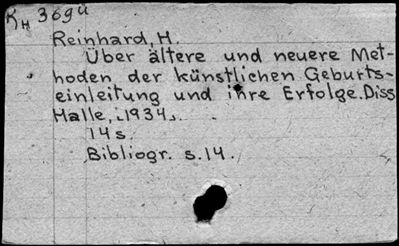 KH 369ü
Reinhard, H.
Über ältere und neuere Met-
hoden der künstlichen Geburts-
einleitung und ihre Erfolge. Diss
Halle, 1934.
14 s.
Bibliogr. s. 14.